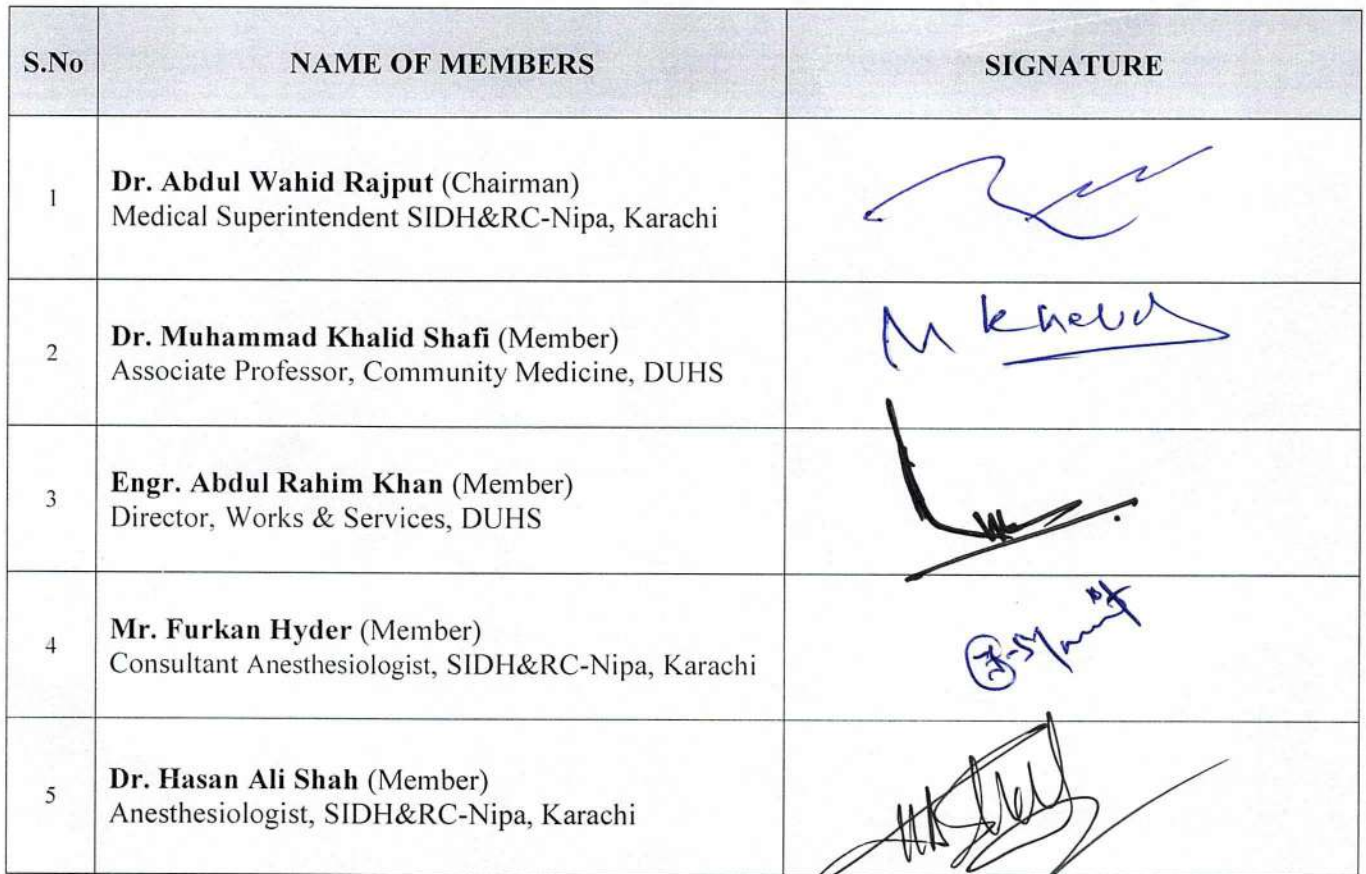 S.No NAME OF MEMBERS SIGNATURE
1 Dr. Abdul Wahid Rajput (Chairman)
Medical Superintendent SIDH&RC-Nipa, Karachi
2 Dr. Muhammad Khalid Shafi (Member)
Associate Professor, Community Medicine, DUHS
M Khalid
3 Engr. Abdul Rahim Khan (Member)
Director, Works & Services, DUHS
4 Mr. Furkan Hyder (Member)
Consultant Anesthesiologist, SIDH&RC-Nipa, Karachi
5 Dr. Hasan Ali Shah (Member)
Anesthesiologist, SIDH&RC-Nipa, Karachi